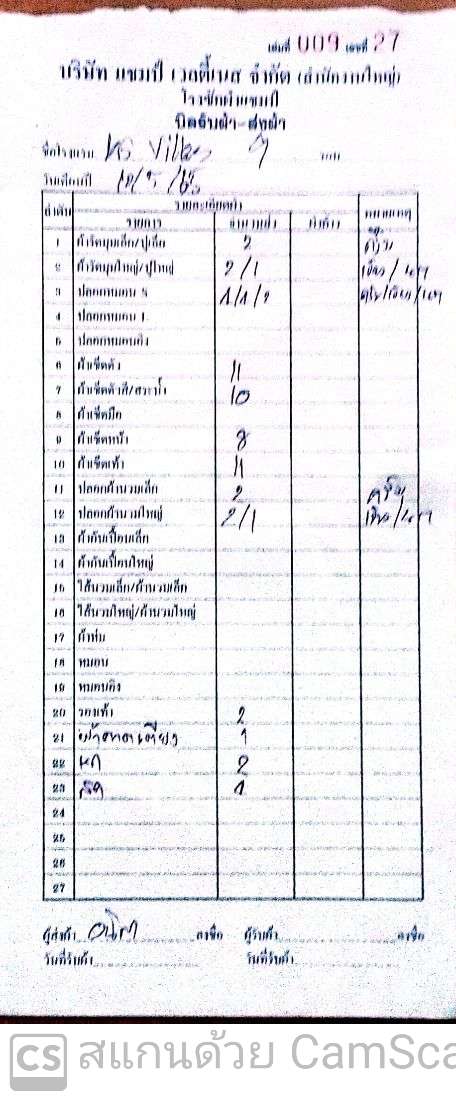 เล่มที่ 009 เลขที่ 27
บริษัท แชมป์ เวลตี้เนส จำกัด (สำนักงานใหญ่)
โรงซักผ้าแชมป์
บิลรับผ้า-ส่งผ้า
ชื่อโรงแรม Villas 9
วันเดือนปี
ลำดับ รายละเอียดผ้า หมายเหตุ
รายการ จำนวนผ้า
1 ผ้ารัดมุมเล็ก/ปูเล็ก 2 ครีม
2 ผ้ารัดมุมใหญ่/ปูใหญ่ 2/1 เขียว/เทา
3 ปลอกหมอน S 1/1/2 ครีม/เขียว/เทา
4 ปลอกหมอน L
5 ปลอกหมอนอิง
6 ผ้าเช็ดตัว 11
7 ผ้าเช็ดตัวสี/สระน้ำ 10
8 ผ้าเช็ดมือ
9 ผ้าเช็ดหน้า 8
10 ผ้าเช็ดเท้า 11
11 ปลอกผ้านวมเล็ก 2 ครีม
12 ปลอกผ้านวมใหญ่ 2/1 เขียว/เทา
13 ผ้ากันเปื้อนเล็ก
14 ผ้ากันเปื้อนใหญ่
15 ไส้นวมเล็ก/ผ้านวมเล็ก
16 ไส้นวมใหญ่/ผ้านวมใหญ่
17 ผ้าห่ม
18 หมอน
19 หมอนอิง
20 รองเท้า 2
21 ผ้าคาดเตียง 1
22 2
23 1
24
25
26
27
ผู้ส่งผ้า ลงชื่อ ผู้รับผ้า ลงชื่อ
วันที่รับผ้า วันที่รับผ้า
CS สแกนด้วย CamSca